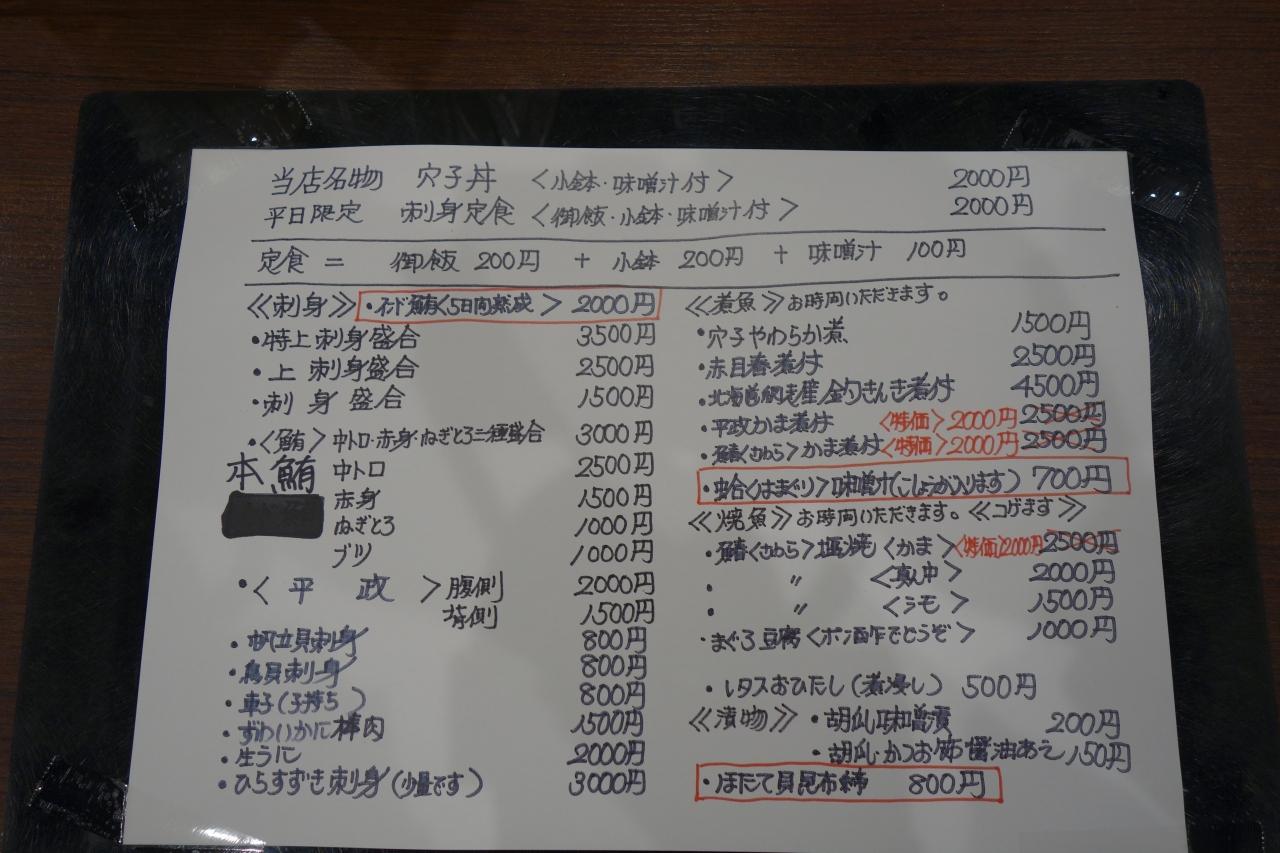 当店名物 穴子丼 〈小鉢・味噌汁付〉 2000円
平日限定 刺身定食 〈御飯・小鉢・味噌汁付〉 2000円
定食 = 御飯 200円 + 小鉢 200円 + 味噌汁 100円
≪刺身≫ ・インド鮪〈5日間熟成〉 2000円
・特上刺身盛合 3500円
・上 刺身盛合 2500円
・刺身盛合 1500円
・〈鮪〉中トロ・赤身・ねぎとろ三種盛合 3000円
本鮪 中トロ 2500円
赤身 1500円
ねぎとろ 1000円
ブツ 1000円
・〈平政〉腹側 2000円
背側 1500円
・帆立貝刺身 800円
・鳥貝刺身 800円
・(子持ち) 800円
・ずわいかに棒肉 1500円
・生うに 2000円
・ひらすずき刺身(少量です) 3000円
≪煮魚≫お時間いただきます。
・穴子やわらか煮 1500円
・赤目春煮付 2500円
・北海道網走産 釣きんき煮付 4500円
・平政かま煮付 〈特価〉2000円 2500円
・鰆〈さわら〉かま煮付〈特価〉2000円 2500円
・蛤〈はまぐり〉味噌汁(こしょう入ります) 700円
≪焼魚≫お時間いただきます。≪コゲます≫
・鰆〈さわら〉塩焼〈かま〉〈特価〉2000円 2500円
・ 〃 〈真中〉 2000円
・ 〃 〈シモ〉 1500円
・まぐろ豆腐〈ポン酢でどうぞ〉 1000円
・レタスおひたし(煮浸し) 500円
≪漬物≫ ・胡瓜味噌漬 200円
・胡瓜・かつお節醤油あえ 150円
・ほたて貝昆布締 800円